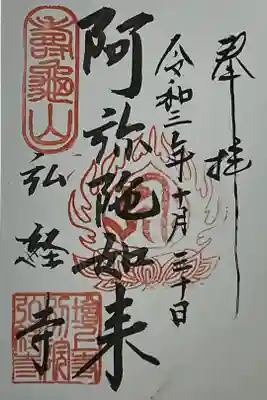 奉拝
令和三年十月三十日
阿弥陀如来
壽龜山
弘経寺